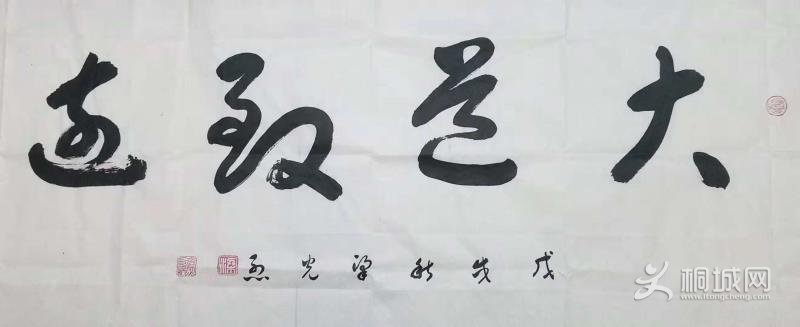 大道致远
戊戌秋梁光烈
桐城网
www.itongcheng.com